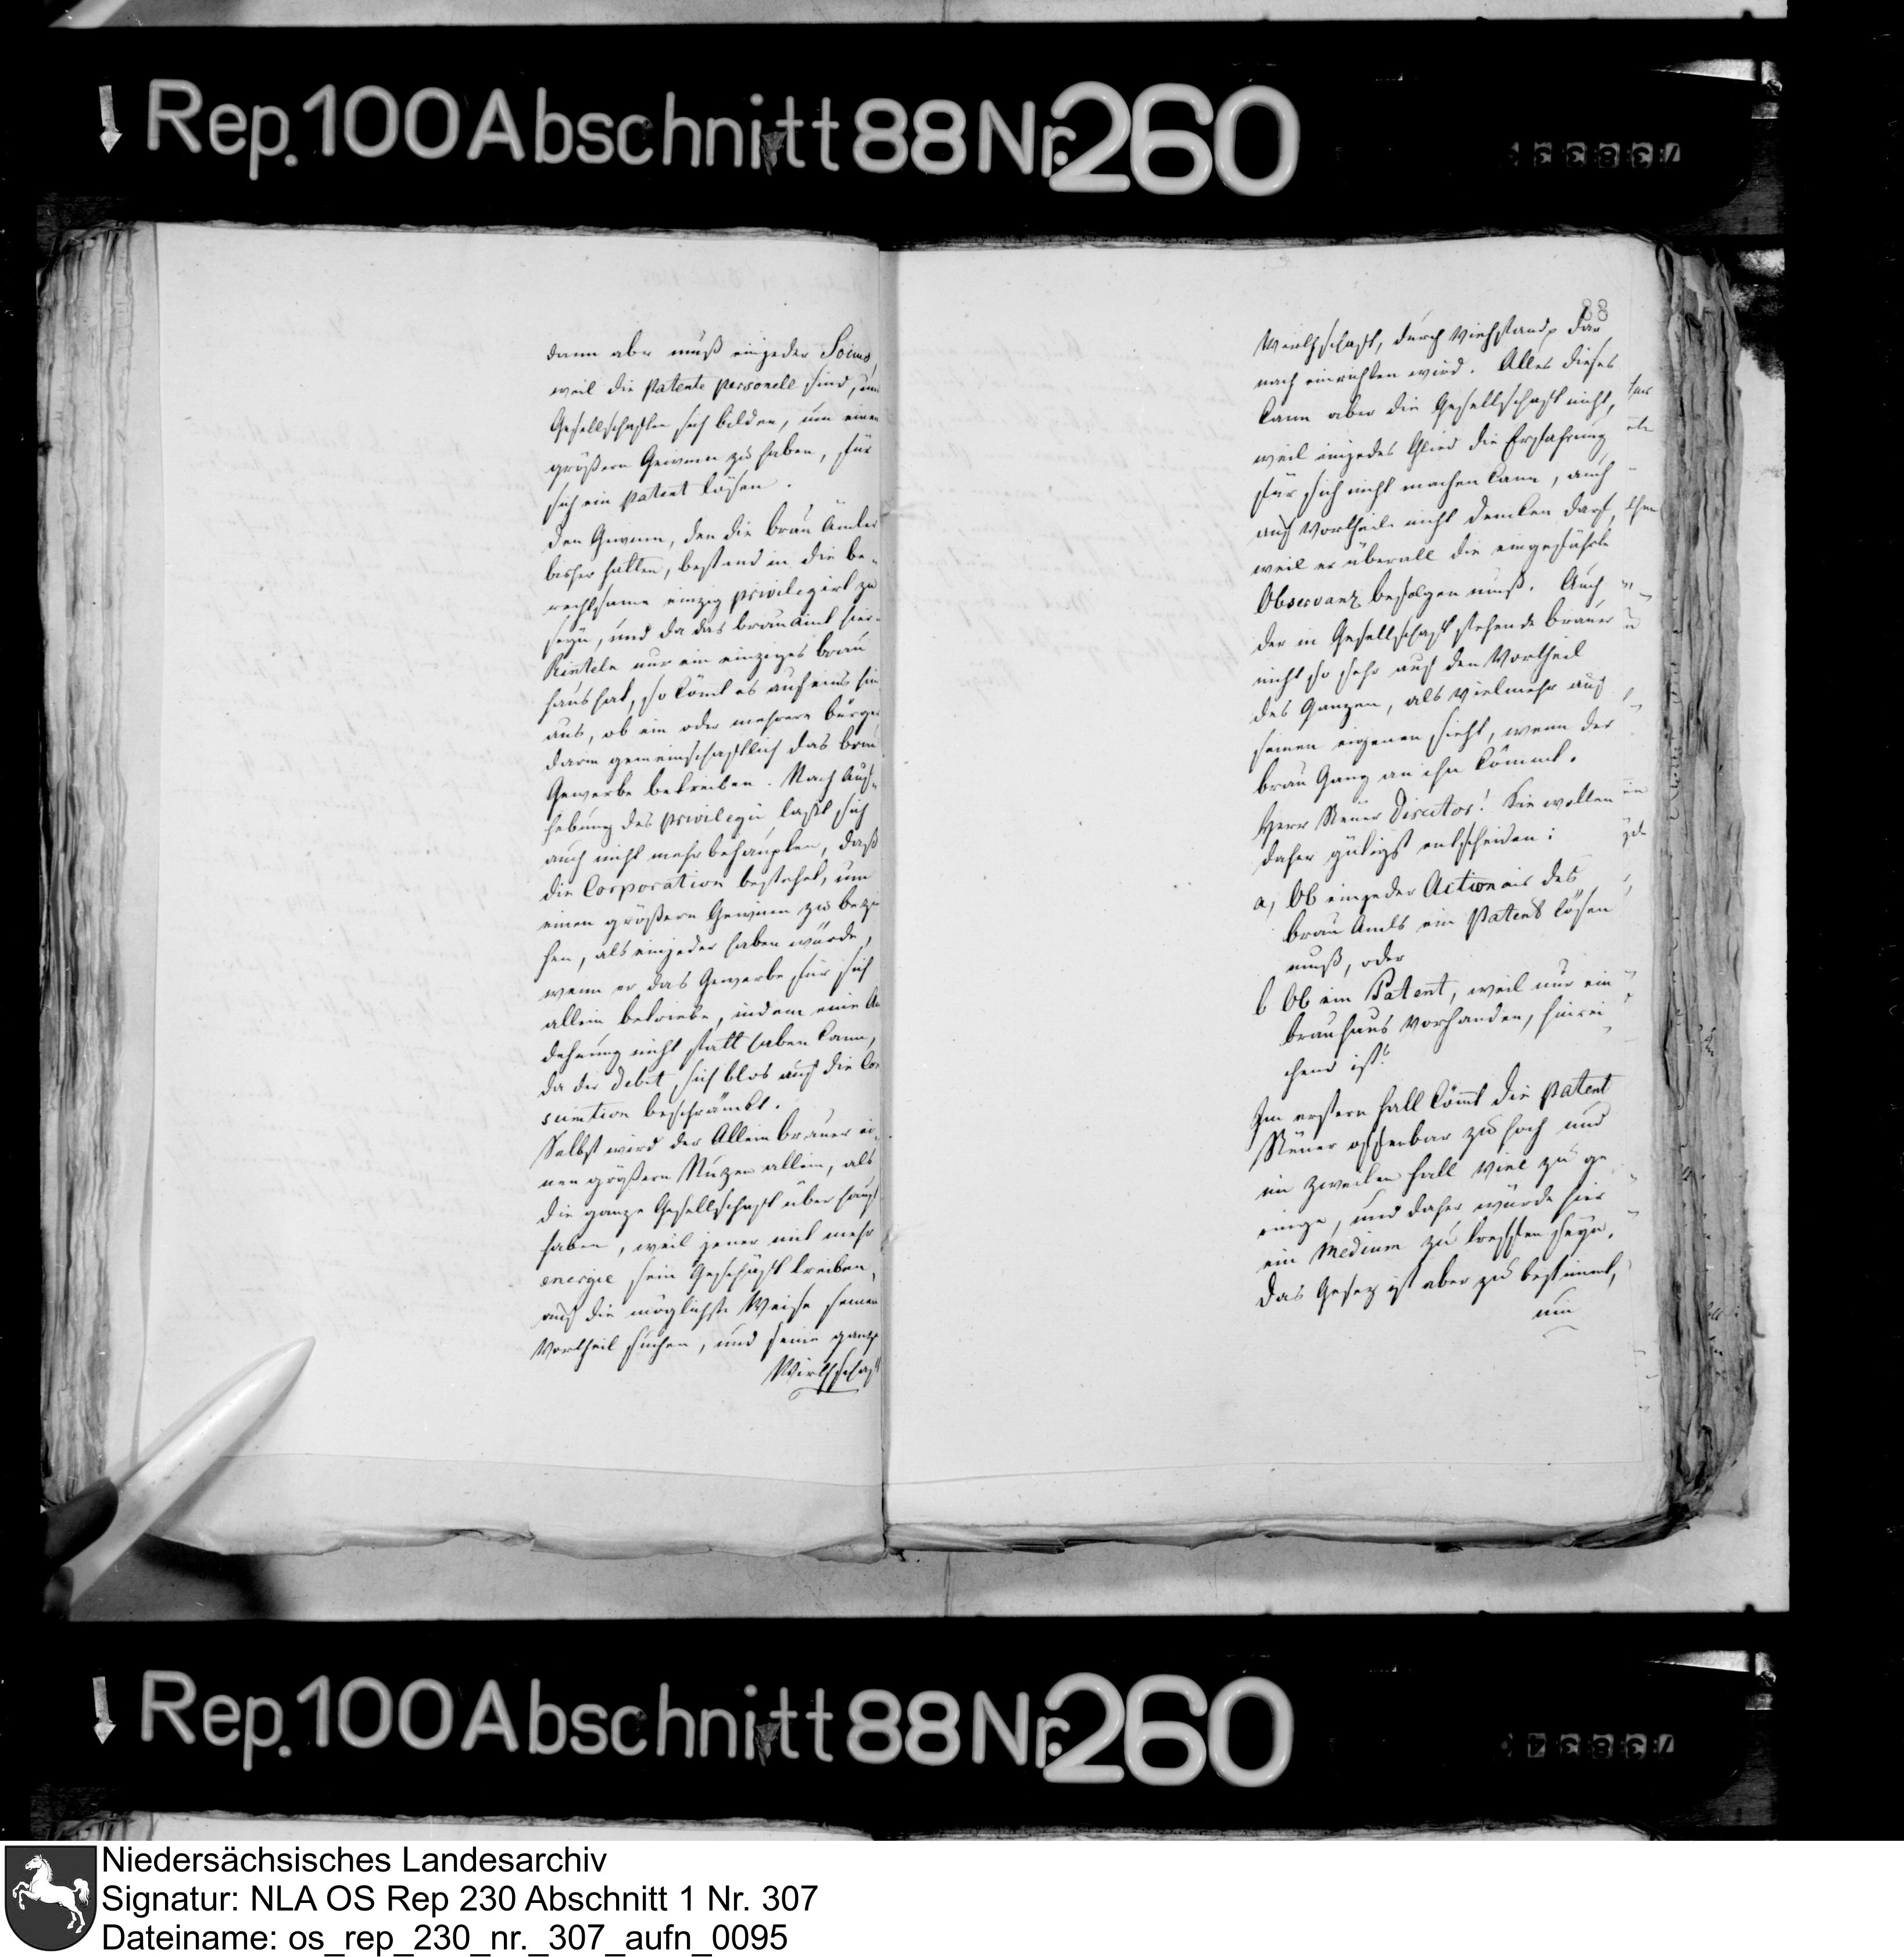 Rep. 100 Abschnitt 88 Nr. 260
dann aber muß einjeder Socius,
weil die Patente personell sind, um
Gesellschaften sich bilden, um einen
größern Gewinn zu haben, für
sich ein Patent lösen.
Den Gewinn, den die brau Ämter
bisher hatten, bestand in die be-
rechtsame einzig privilegirt zu
seyn, und da das brau Amt hier-
Rinteln nur ein einziges brau
haus hat, so kömt es auf eins hin
aus, ob ein oder mehrere bürger
darin gemeinschaftlich das brau
Gewerbe betreiben. Nach Auf-
hebung des privilegii laßt sich
auch nicht mehr behaupten, daß
die Corporation bestehet, um
einen größern Gewinn zu bezie
hen, als einjeder haben würde,
wenn er das Gewerbe für sich
allein betriebe, indem eine Au
dehnung nicht statt haben kann,
da der Debit sich blos auf die Con
sumtion beschränkt.
Selbst wird der Alleinbrauer ei-
nen größern Nutzen allein, als
die ganze Gesellschaft überhaupt
haben, weil jener mit mehr
energie sein Geschäft treiben,
auf die möglichste Weise seinen
Vortheil suchen, und seine ganze
Wirthschaft
88
Wirthschaft, durch Viehstand dar
nach einrichten wird. Alles dieses
kann aber die Gesellschaft nicht,
weil einjedes Glied die Erfahrung
für sich nicht machen kann, auch
auf Vortheile nicht denken darf,
weil er überall die eingeführte
Observanz befolgen muß. Auch
der in Gesellschaft stehende brauer
nicht so sehr auf den Vortheil
des Ganzen, als vielmehr auf
seinen eigenen sieht, wenn der
brau Gang an ihn kömmt.
Herr Steuer Director! Sie wollen
daher gütigst entscheiden:
a, Ob einjeder Actionair des
brau Amts ein Patent lösen
muß, oder
b Ob ein Patent, weil nur ein
brauhaus vorhanden, hinrei
chend ist?
Im erstern fall kömt die Patent
Steuer offenbar zu hoch und
im zweiten fall viel zu ge
ringe, und daher würde hier
ein Medium zu treffen seyn,
das Gesez ist aber zu bestimmt,
um
Rep. 100 Abschnitt 88 Nr. 260
Niedersächsisches Landesarchiv
Signatur: NLA OS Rep 230 Abschnitt 1 Nr. 307
Dateiname: os_rep_230_nr._307_aufn_0095